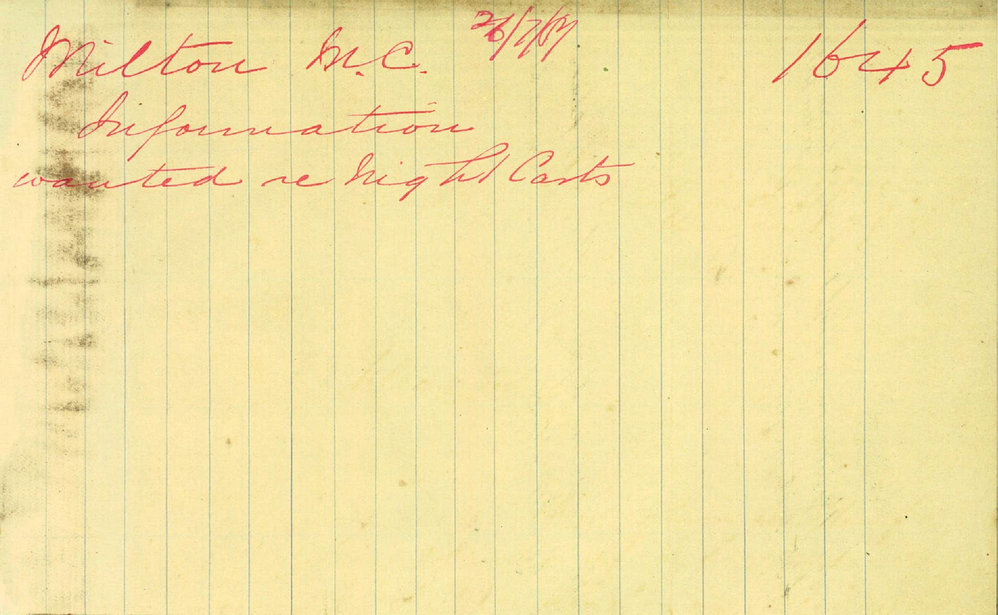 Milton M.C. 26/7/07 1645
Information
wanted re Night Carts